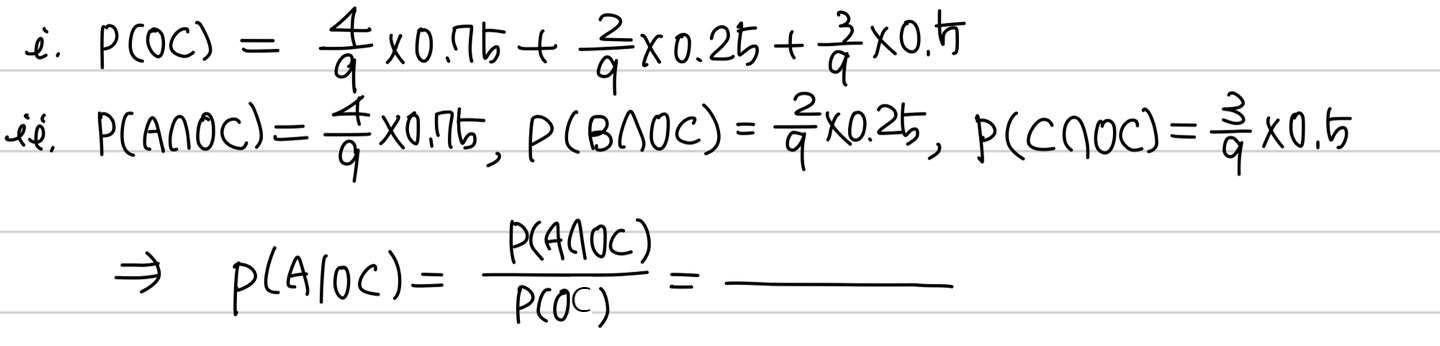 i. P(OC) = 4/9 × 0.75 + 2/9 × 0.25 + 3/9 × 0.5
ii. P(A∩OC) = 4/9 × 0.75, P(B∩OC) = 2/9 × 0.25, P(C∩OC) = 3/9 × 0.5
⇒ P(A|OC) = P(A∩OC)/P(OC) = ―